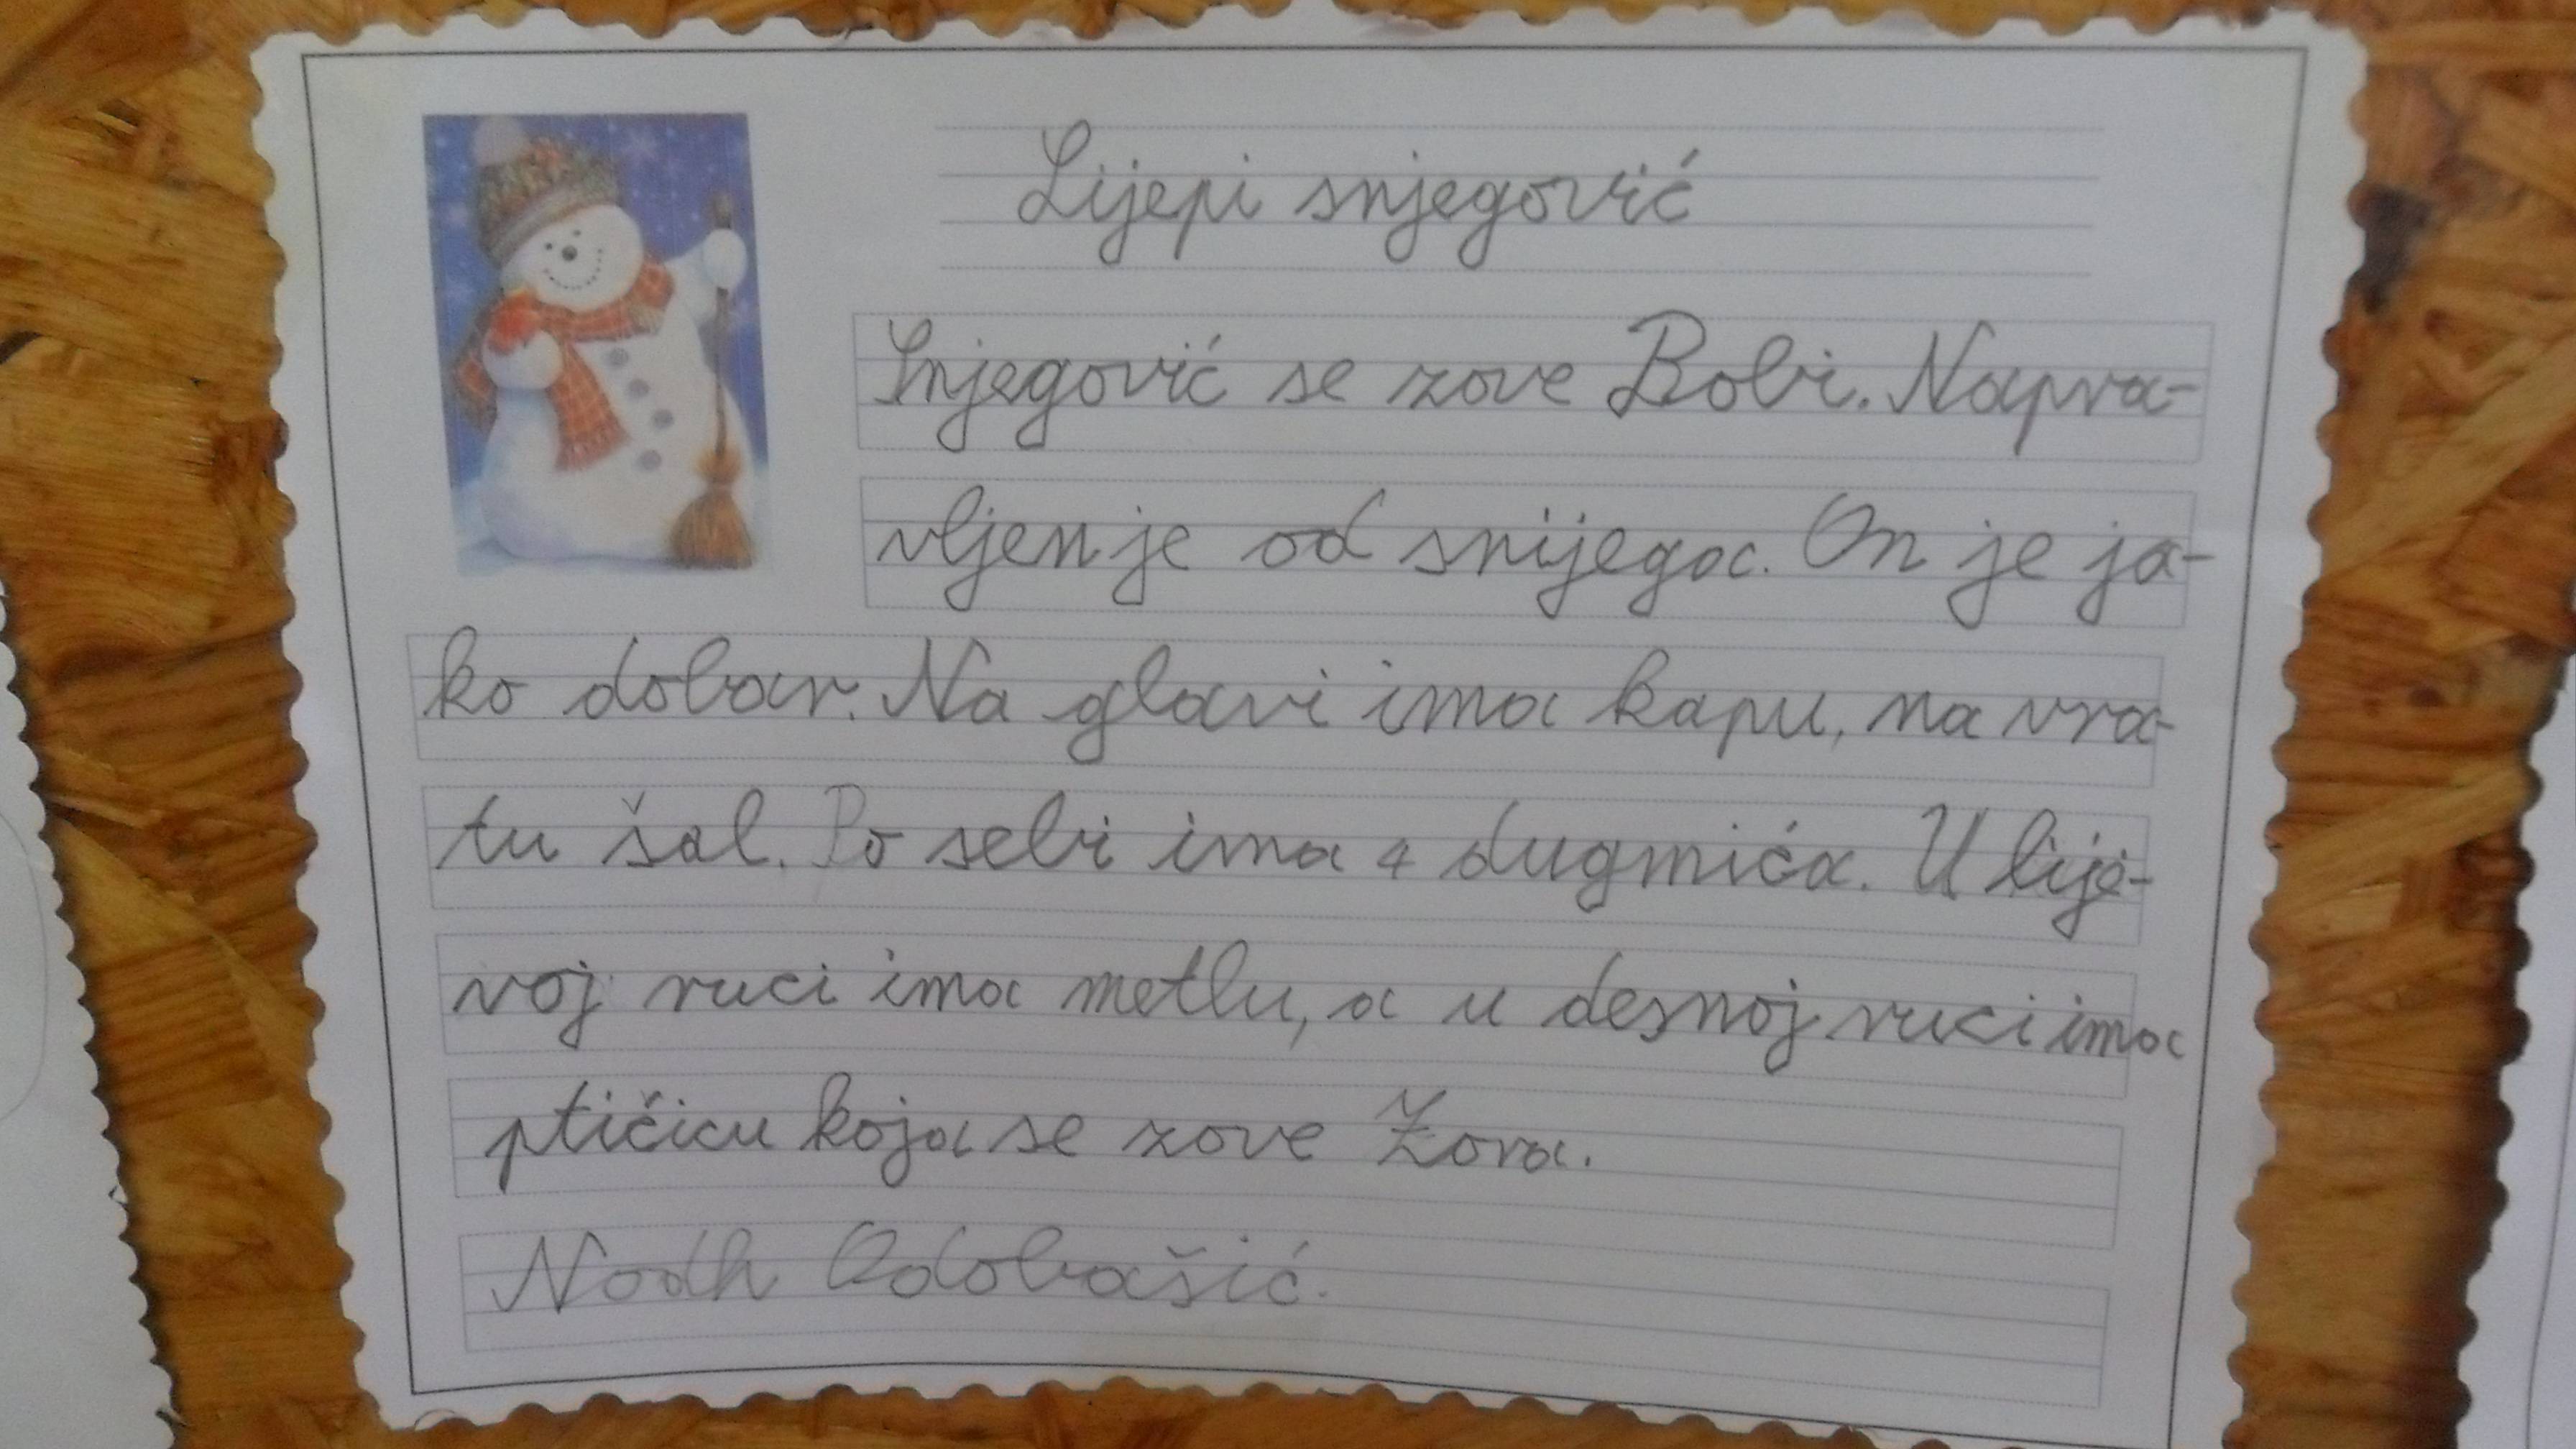 Lijepi snjegović
Snjegović se zove Bobi. Napra-
vljen je od snijega. On je ja-
ko dobar. Na glavi ima kapu, na vra-
tu šal. Po sebi ima 4 dugmića. U lije-
voj ruci ima metlu, a u desnoj ruci ima
ptičicu koja se zove Zora.
Nodh Odobašić.